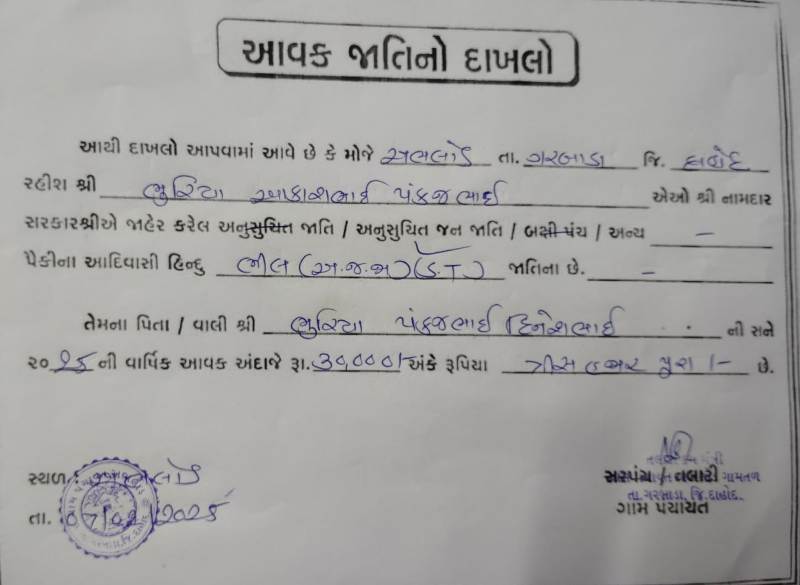 આવક જાતિનો દાખલો
આથી દાખલો આપવામાં આવે છે કે મોજે અભલોડ તા. ગરબાડા જિ. દાહોદ
રહીશ શ્રી ભુરિયા આકાશભાઈ પંકજભાઈ એઓ શ્રી નામદાર
સરકારશ્રીએ જાહેર કરેલ અનુસુચિત જાતિ / અનુસુચિત જન જાતિ / બક્ષી પંચ / અન્ય —
પૈકીના આદિવાસી હિન્દુ ભીલ (અ.જ.જા) (S.T) જાતિના છે. —
તેમના પિતા / વાલી શ્રી ભુરિયા પંકજભાઈ દિનેશભાઈ ની સને
૨૦ ની વાર્ષિક આવક અંદાજે રૂા. 30,000/- અંકે રૂપિયા ત્રીસ હજાર પુરા /- છે.
સ્થળ : અભલોડ
તા. 07/02/2025
સરપંચ / તલાટી
તા.ગરબાડા, જિ.દાહોદ.
ગામ પંચાયત